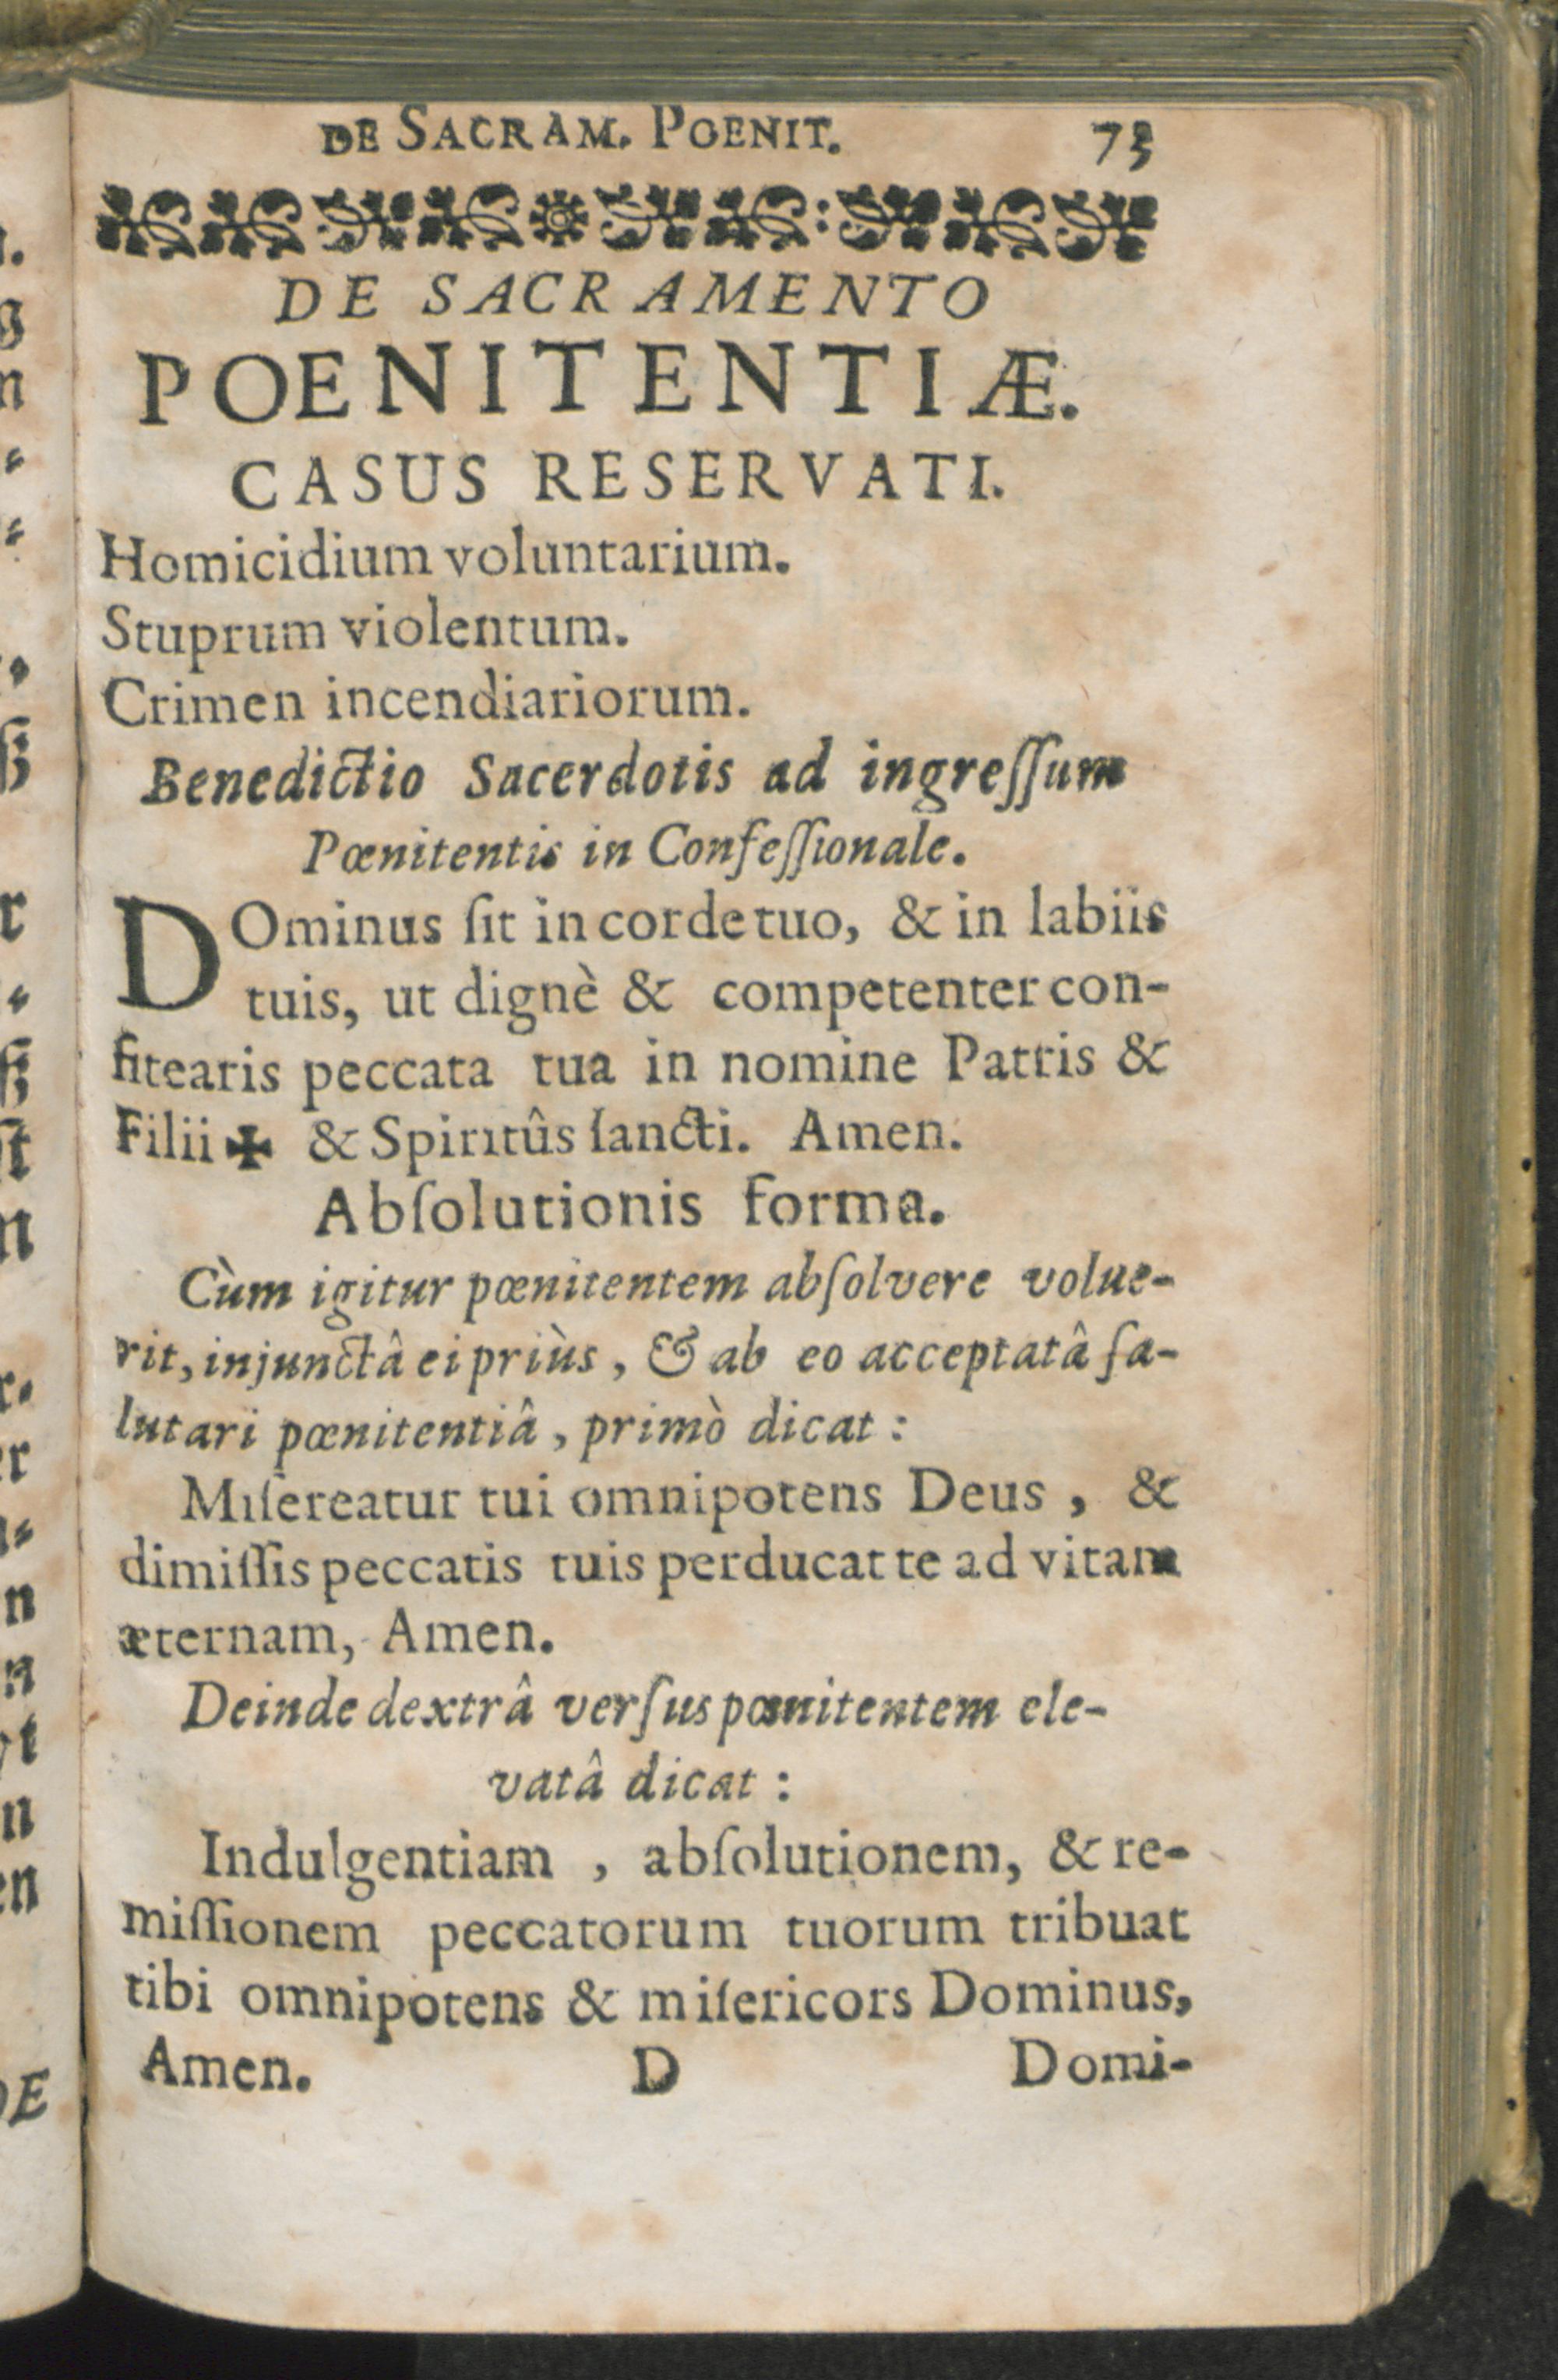 DE SACRAM. POENIT. 73
DE SACRAMENTO
POENITENTIÆ.
CASUS RESERVATI.
Homicidium voluntarium.
Stuprum violentum.
Crimen incendiariorum.
Benedictio Sacerdotis ad ingreſſum
Pœnitentis in Confeſſionale.
DOminus ſit in corde tuo, & in labiis
tuis, ut dignè & competenter con-
fitearis peccata tua in nomine Patris &
Filii ✠ & Spiritûs ſancti. Amen.
Abſolutionis forma.
Cùm igitur pœnitentem abſolvere volue-
rit, injunctâ ei priùs, & ab eo acceptatâ ſa-
lutari pœnitentiâ, primò dicat:
Miſereatur tui omnipotens Deus, &
dimiſſis peccatis tuis perducat te ad vitam
æternam, Amen.
Deinde dextrâ verſus pœnitentem ele-
vatâ dicat:
Indulgentiam, abſolutionem, & re-
miſſionem peccatorum tuorum tribuat
tibi omnipotens & miſericors Dominus,
Amen. D Domi-